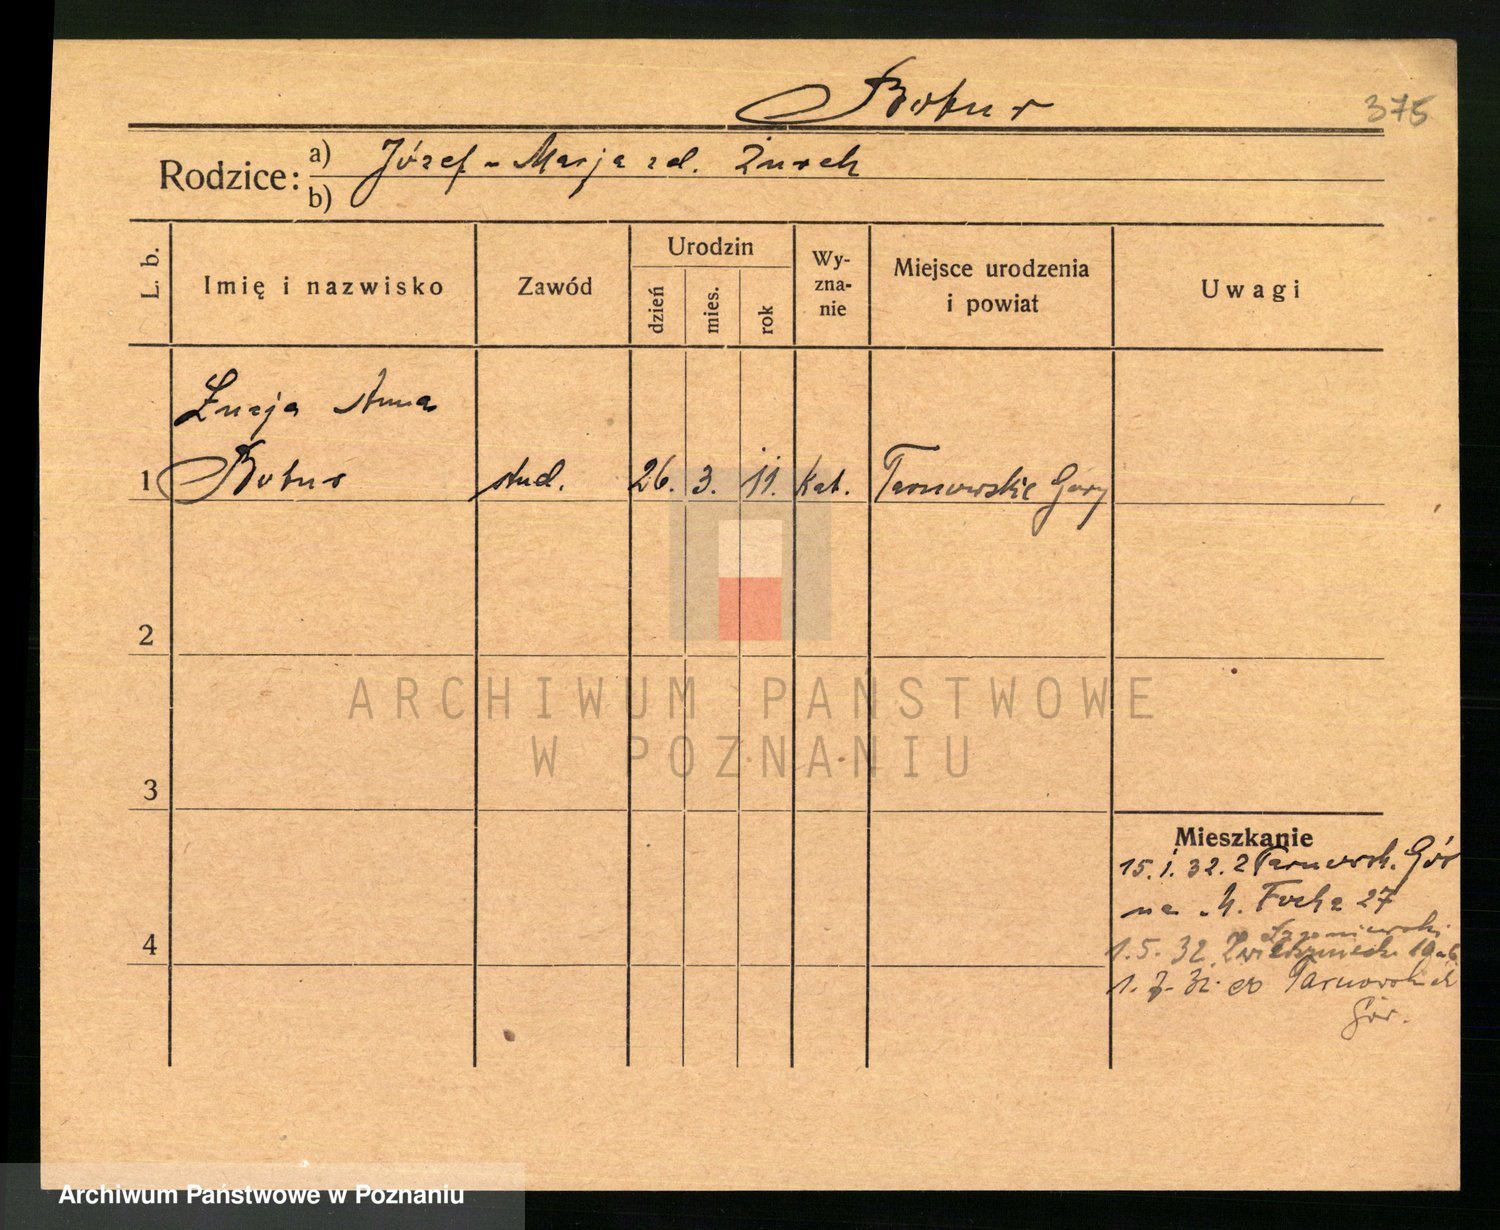 Botur
375
Rodzice:
a) Józef - Marja zd. Żurek
b)
L. b.
Imię i nazwisko
Zawód
Urodzin
dzień
mies.
rok
Wy-
zna-
nie
Miejsce urodzenia
i powiat
Uwagi
Łucja Anna
1 Botur stud. 26. 3. 11. kat. Tarnowskie Góry
2
3
4
Mieszkanie
15. 1. 32. z Tarnowsk. Gór
na M. Focha 27
1. 5. 32.
1. 7. 32. do Tarnowskich
Gór.
ARCHIWUM PAŃSTWOWE
W POZNANIU
Archiwum Państwowe w Poznaniu